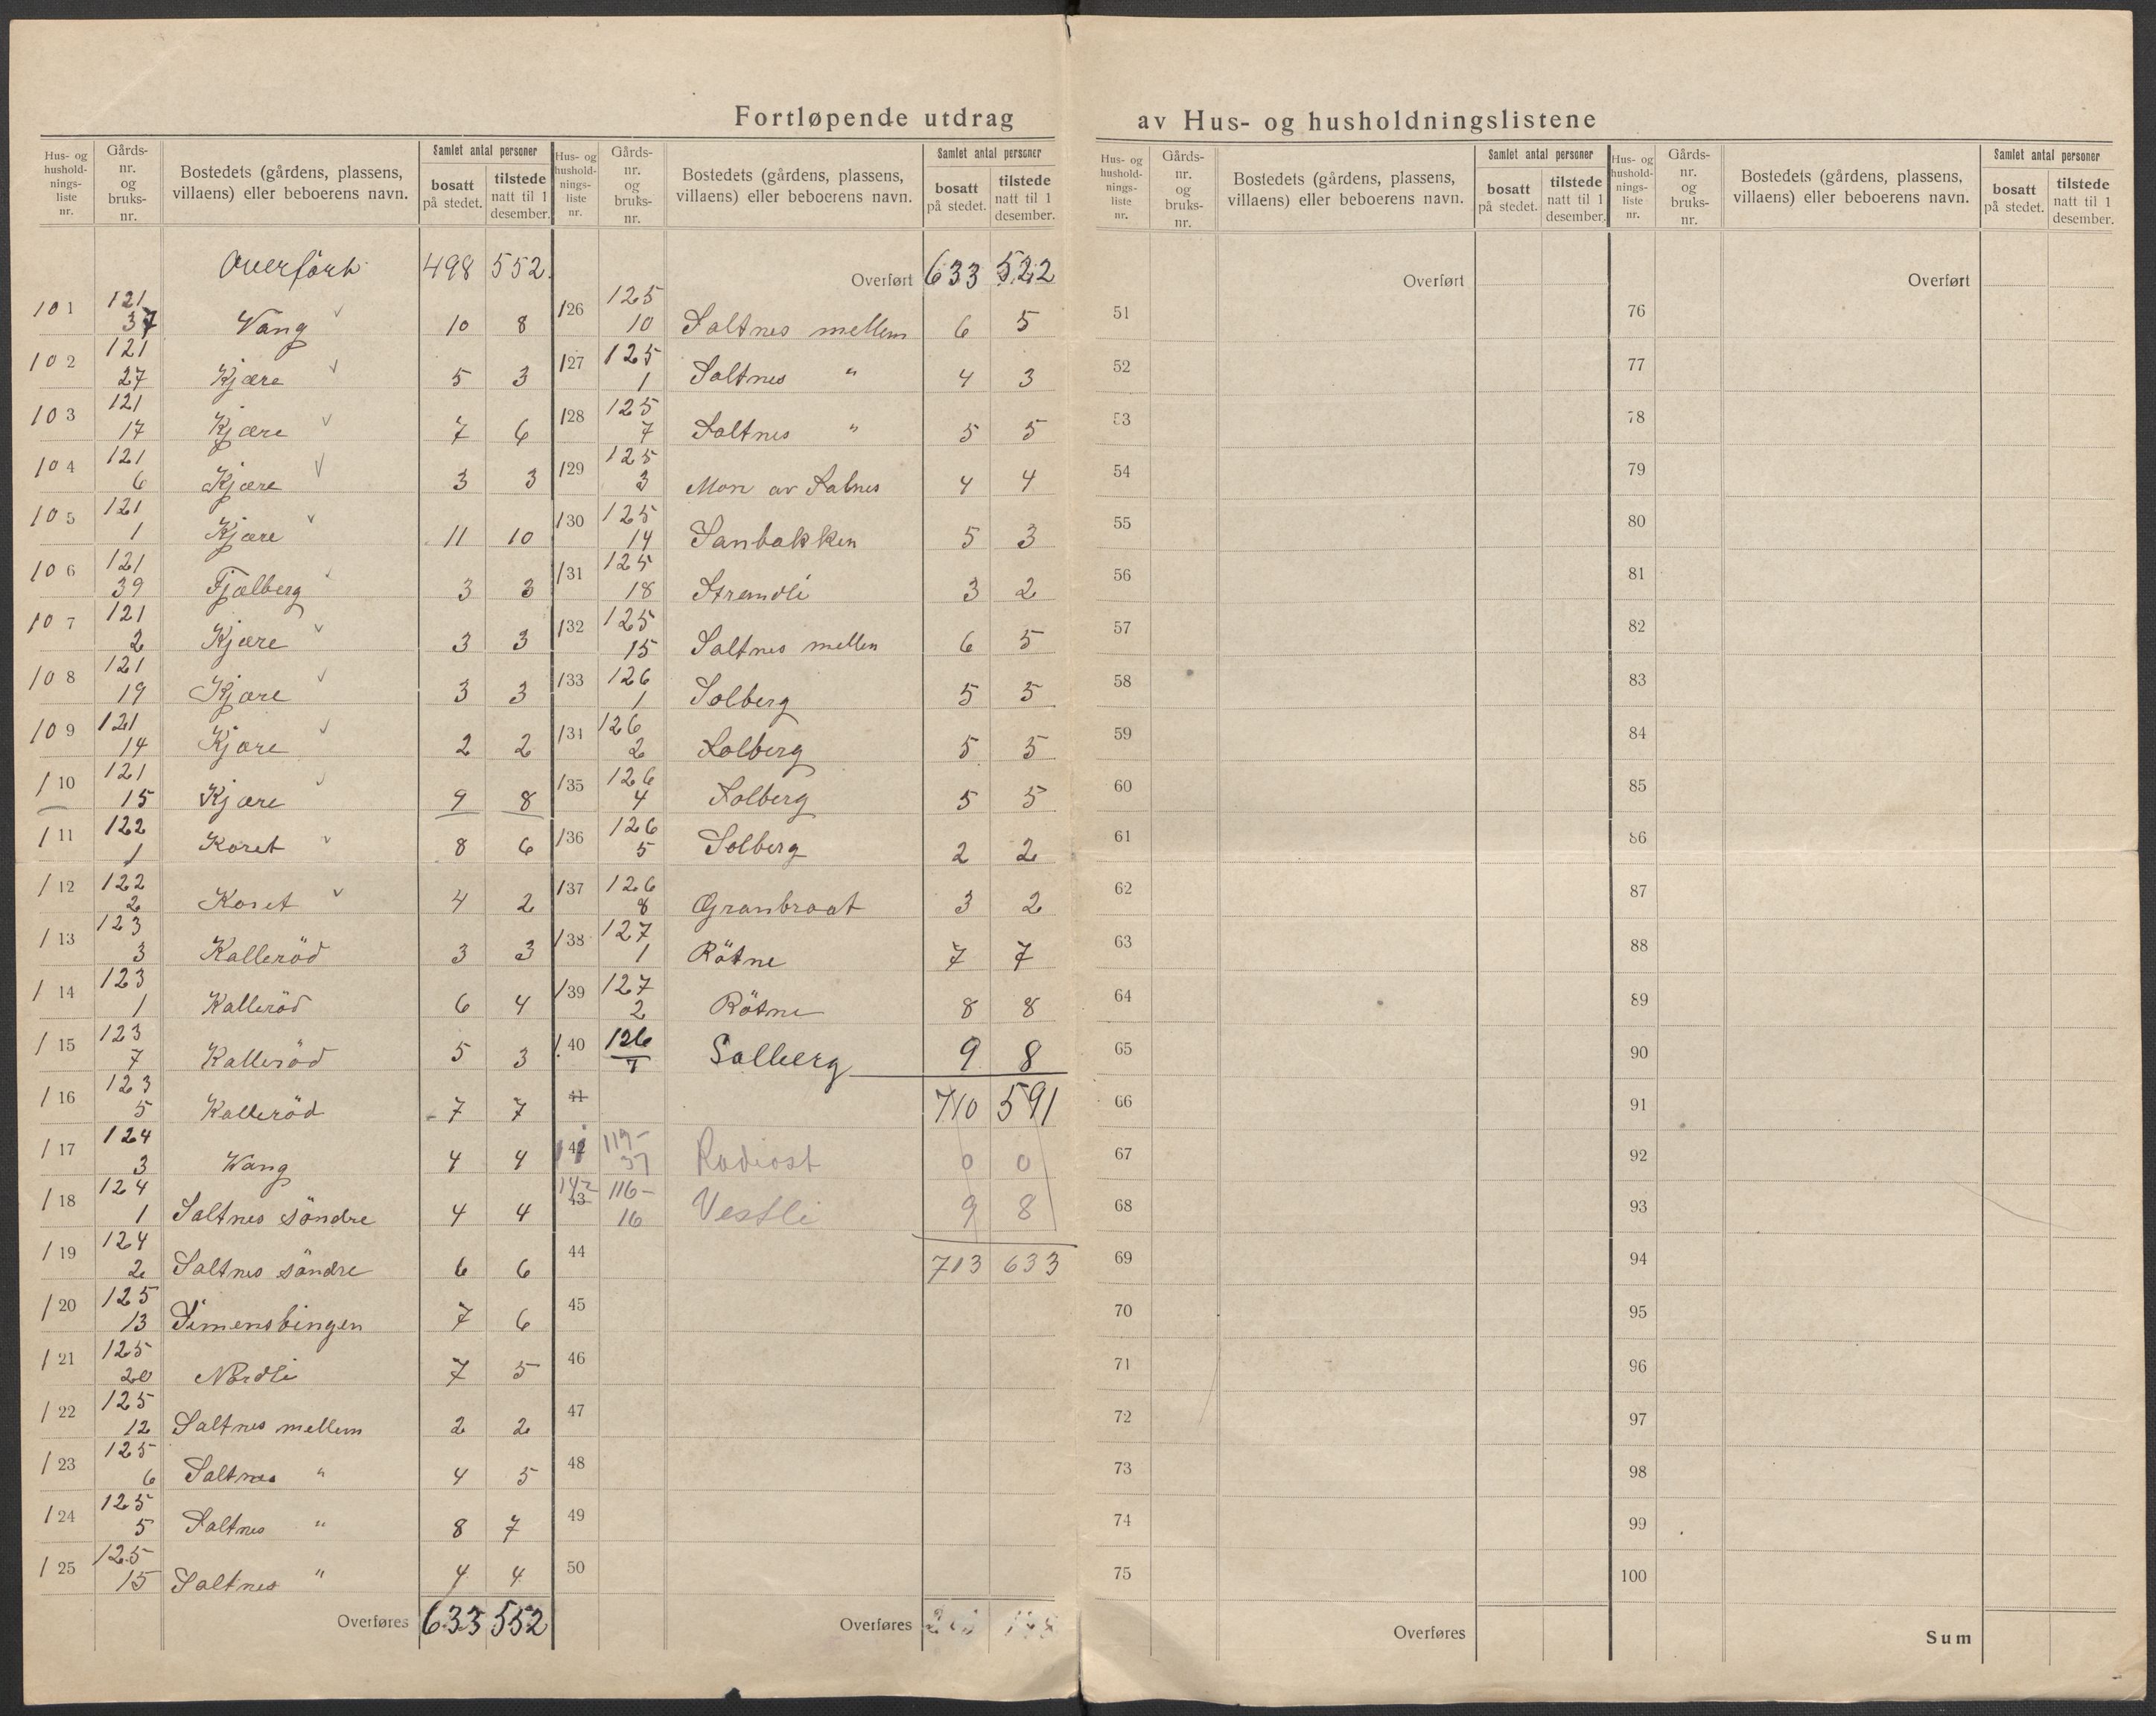 Fortløpende utdrag av Hus- og husholdningslistene
Hus- og hushold-nings-liste nr. | Gårds-nr. og bruks-nr. | Bostedets (gårdens, plassens, villaens) eller beboerens navn. | Samlet antal personer | bosatt på stedet. | tilstede natt til 1 desember.
Overført 498 552
101 121 37 Vang 10 8
102 121 27 Kjære 5 3
103 121 17 Kjære 7 6
104 121 6 Kjære 3 3
105 121 1 Kjære 11 10
106 121 39 Fjælberg 3 3
107 121 2 Kjære 3 3
108 121 19 Kjære 3 3
109 121 14 Kjære 2 2
110 121 15 Kjære 9 8
111 122 1 Koret 8 6
112 122 2 Koret 4 2
113 123 3 Kalleröd 3 3
114 123 1 Kalleröd 6 4
115 123 7 Kalleröd 5 3
116 123 5 Kalleröd 7 7
117 124 3 Wang 4 4
118 124 1 Saltnes söndre 4 4
119 124 2 Saltnes söndre 6 6
120 125 13 Simensbingen 7 6
121 125 20 Nordli 7 5
122 125 12 Saltnes mellem 2 2
123 125 6 Saltnes " 4 5
124 125 5 Saltnes " 8 7
125 125 15 Saltnes " 4 4
Overføres 633 552
Hus- og hushold-nings-liste nr. | Gårds-nr. og bruks-nr. | Bostedets (gårdens, plassens, villaens) eller beboerens navn. | Samlet antal personer | bosatt på stedet. | tilstede natt til 1 desember.
Overført 633 522
126 125 10 Saltnes mellem 6 5
127 125 1 Saltnes " 4 3
128 125 7 Saltnes " 5 5
129 125 3 Mon av Salnes 4 4
130 125 14 Sanbakken 5 3
131 125 18 Strandli 3 2
132 125 15 Saltnes mellen 6 5
133 126 1 Solberg 5 5
134 126 2 Solberg 5 5
135 126 4 Solberg 5 5
136 126 5 Solberg 2 2
137 126 8 Granbraat 3 2
138 127 1 Rötne 7 7
139 127 2 Rötne 8 8
140 126 7 Solberg 9 8
41 710 591
42 119- 37 Radiost 0 0
142 43 116- 16 Vestli 9 8
44 713 633
45
46
47
48
49
50
Overføres
Hus- og hushold-nings-liste nr. | Gårds-nr. og bruks-nr. | Bostedets (gårdens, plassens, villaens) eller beboerens navn. | Samlet antal personer | bosatt på stedet. | tilstede natt til 1 desember.
Overført
51
52
53
54
55
56
57
58
59
60
61
62
63
64
65
66
67
68
69
70
71
72
73
74
75
Overføres
Hus- og hushold-nings-liste nr. | Gårds-nr. og bruks-nr. | Bostedets (gårdens, plassens, villaens) eller beboerens navn. | Samlet antal personer | bosatt på stedet. | tilstede natt til 1 desember.
Overført
76
77
78
79
80
81
82
83
84
85
86
87
88
89
90
91
92
93
94
95
96
97
98
99
100
Sum